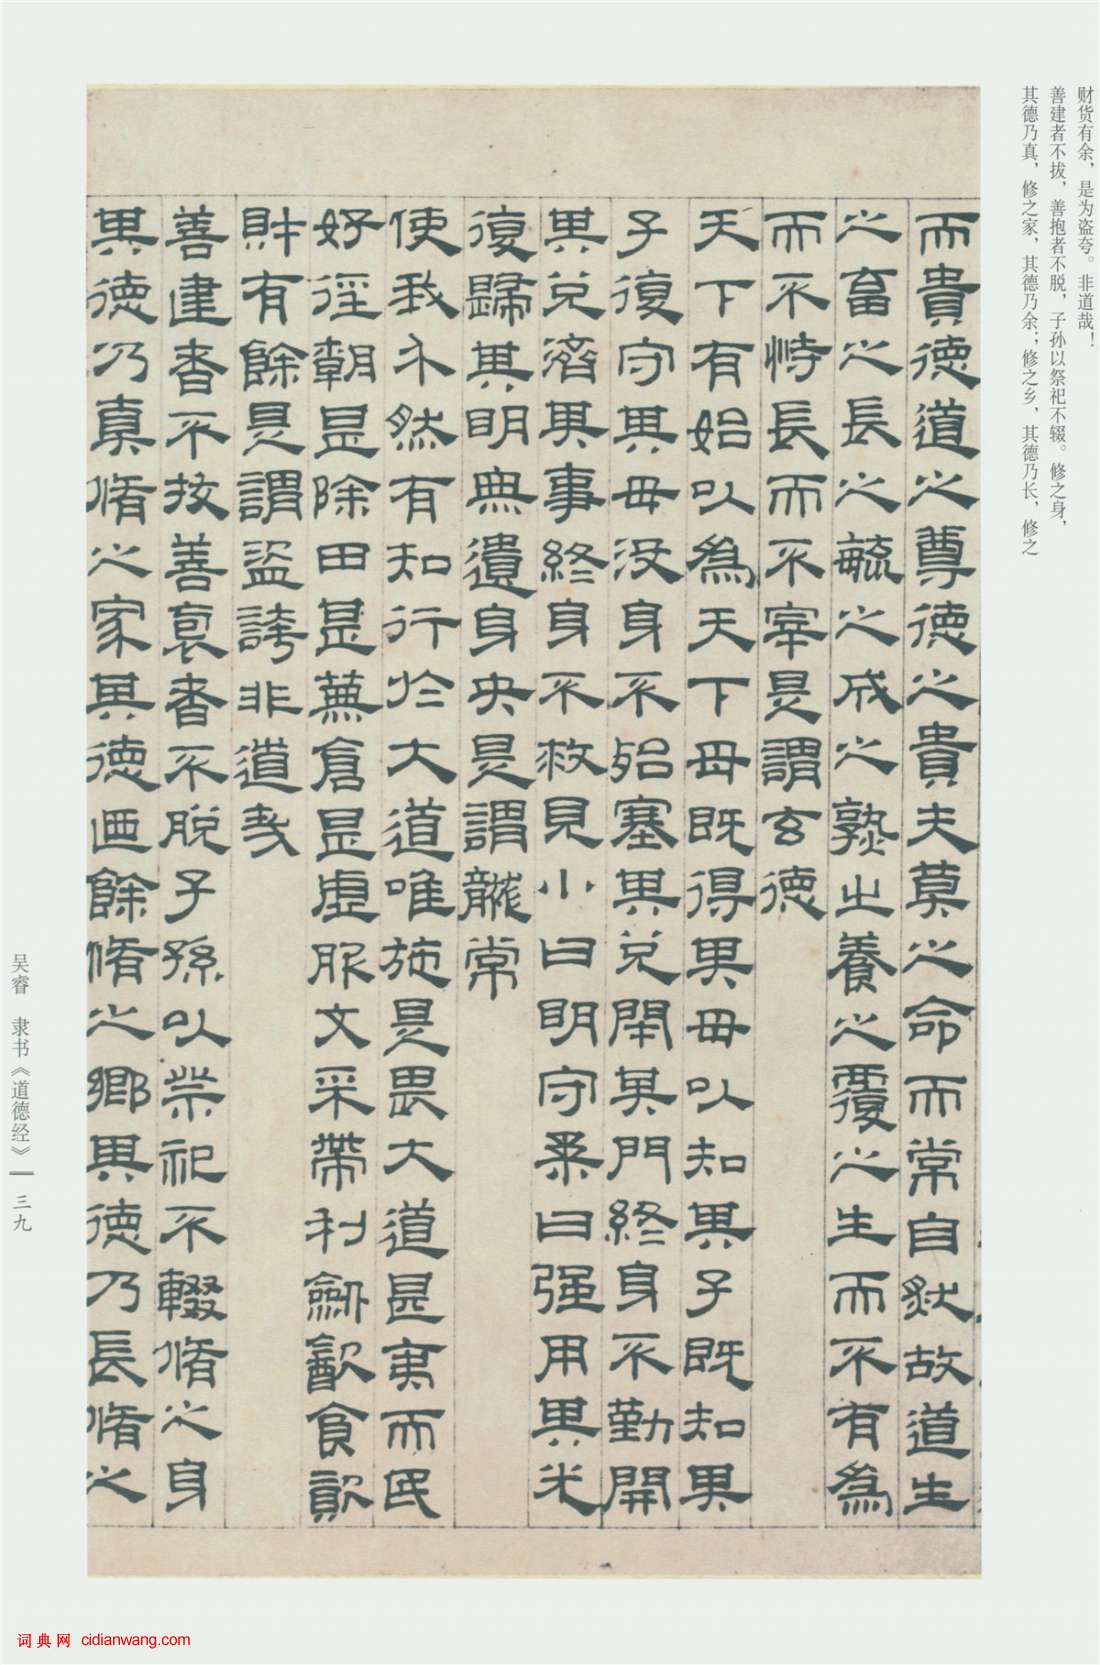 财货有余，是为盗夸。非道哉！
善建者不拔，善抱者不脱，子孙以祭祀不辍。修之身，
其德乃真，修之家，其德乃余；修之乡，其德乃长，修之
而貴德道之尊德之貴夫莫之命而常自然故道生
之畜之長之毓之成之熟之養之覆之生而不有為
而不恃長而不宰是謂玄德
天下有始以為天下母既得其母以知其子既知其
子復守其母没身不殆塞其兌閉其門終身不勤開
其兌濟其事終身不救見小曰明守柔曰强用其光
復歸其明無遺身央是謂襲常
使我介然有知行於大道唯施是畏大道甚夷而民
好徑朝甚除田甚蕪倉甚虛服文采帶利劍飲食資
財有餘是謂盜誇非道哉
善建者不拔善裒者不脫子孫以祭祀不輟脩之身
其德乃真脩之家其德迺餘脩之鄉其德乃長脩之
吴睿 隶书《道德经》 三九
词典网 cidianwang.com